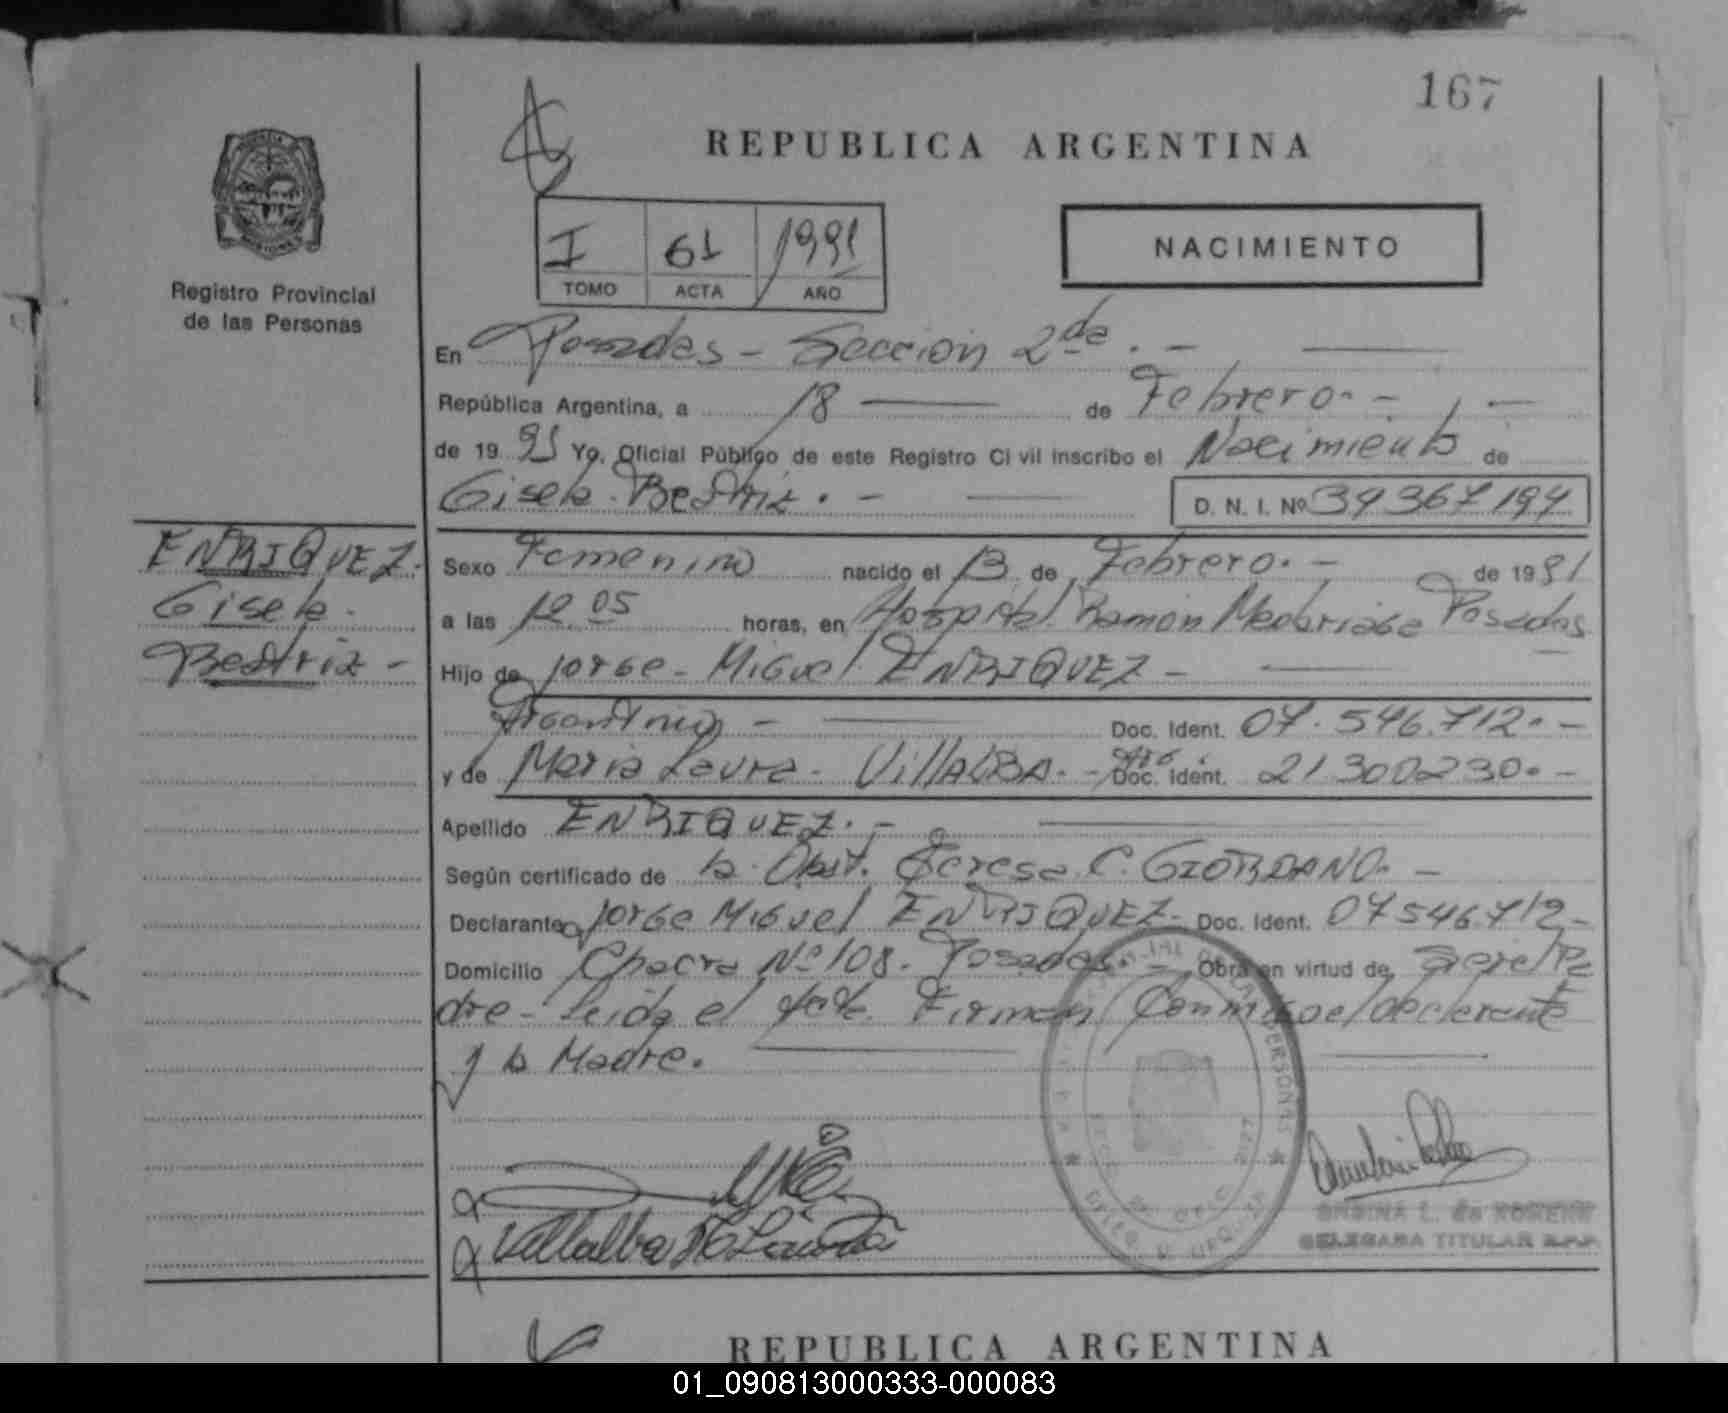 167
REPUBLICA ARGENTINA
I 61 1991
TOMO ACTA AÑO
NACIMIENTO
Registro Provincial
de las Personas
En Posadas - Sección 2da. -
República Argentina, a 18 de Febrero. -
de 1991 Yo, Oficial Público de este Registro Civil inscribo el Nacimiento de
Gisela Beatriz. - D. N. I. Nº 39367194
ENRIQUEZ.
Gisela.
Beatriz -
Sexo Femenino nacido el 13 de Febrero. - de 1991
a las 12.05 horas, en Hospital Ramón Madariaga Posadas
Hijo de Jorge - Miguel ENRIQUEZ -
Argentino - Doc. Ident. 07.546.712. -
y de Maria Laura - VillALBA. - Arg. Doc. Ident. 21300230. -
Apellido ENRIQUEZ. -
Según certificado de la Obst. Teresa C. GIORDANO. -
Declarante Jorge Miguel ENRIQUEZ - Doc. Ident. 07546.712 -
Domicilio Chacra Nº 108. Posadas. - Obra en virtud de Ser el Pa
dre - Leida el Acta Firman Conmigo el declarante
y la Madre.
Villalba Ma Laura
DELEGADA TITULAR R.P.P.
REPUBLICA ARGENTINA
01_090813000333-000083